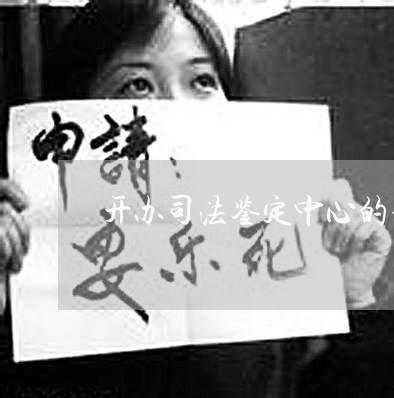 申請：
开办司法鉴定中心的
要乐死